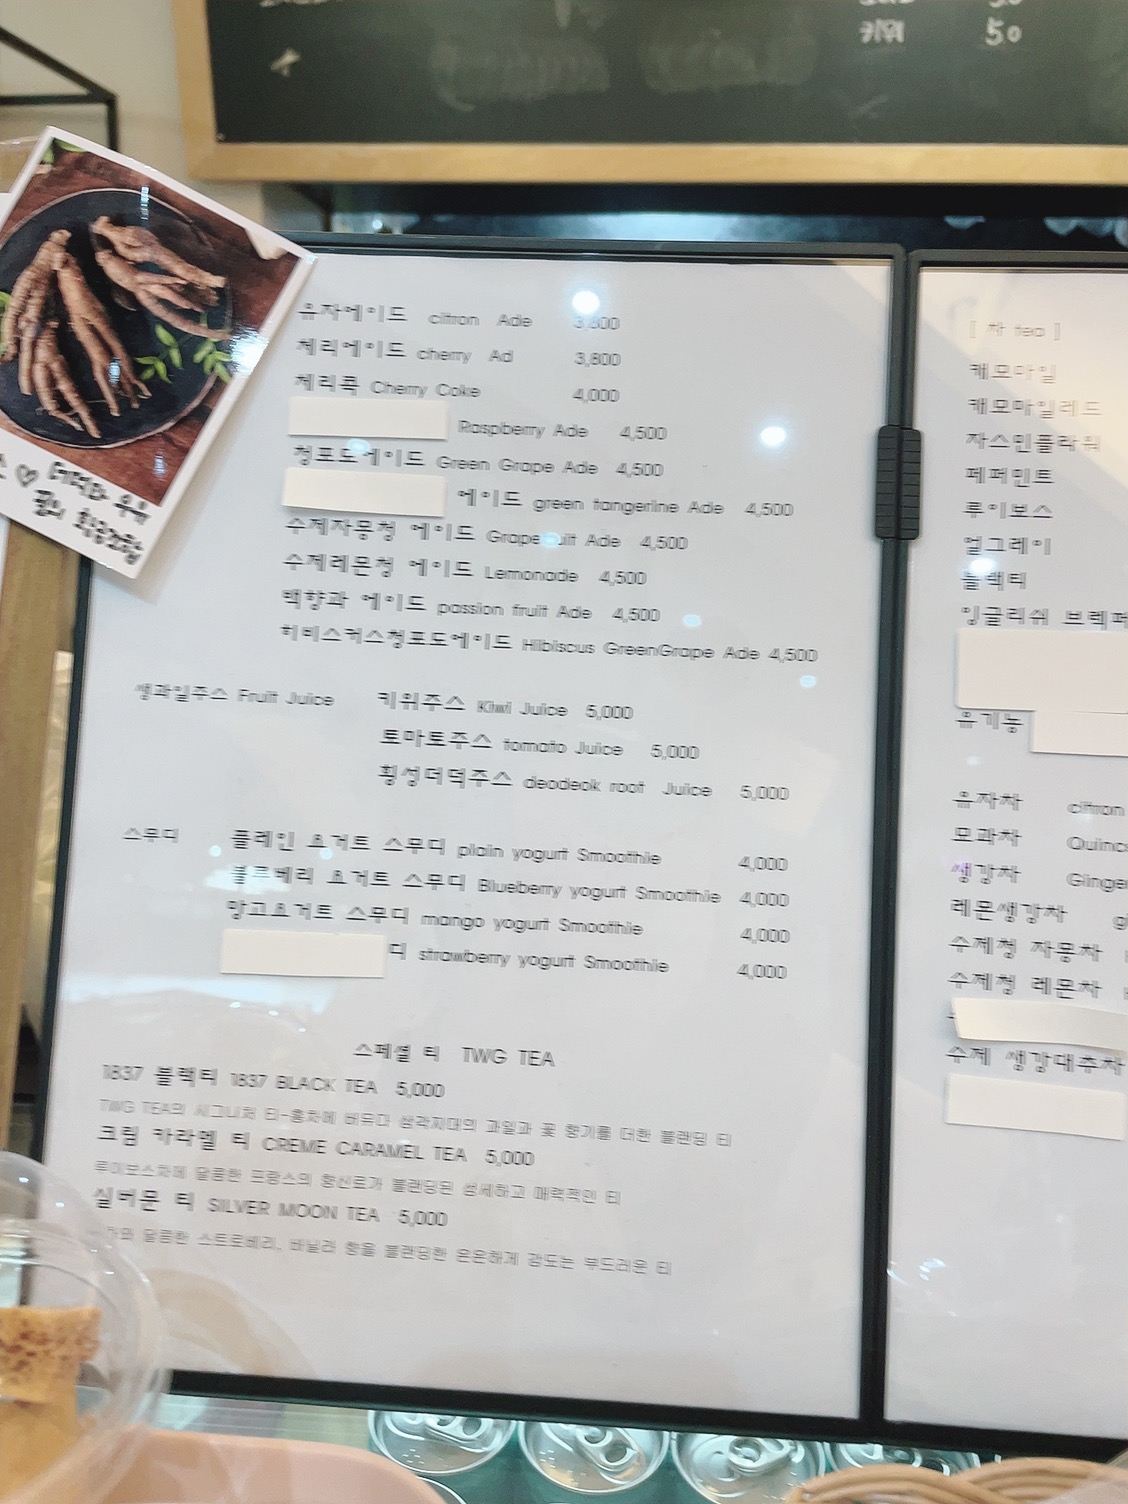 키위 5.0
더덕라
유자에이드 citron Ade 3,800
체리에이드 cherry Ad 3,800
체리콕 Cherry Coke 4,000
Raspberry Ade 4,500
청포도에이드 Green Grape Ade 4,500
에이드 green tangerine Ade 4,500
수제자몽청 에이드 Grapefruit Ade 4,500
수제레몬청 에이드 Lemonade 4,500
백향과 에이드 passion fruit Ade 4,500
히비스커스청포도에이드 Hibiscus GreenGrape Ade 4,500
생과일주스 Fruit Juice 키위주스 Kiwi Juice 5,000
토마토주스 tomato Juice 5,000
횡성더덕주스 deodeok root Juice 5,000
스무디 플레인 요거트 스무디 plain yogurt Smoothie 4,000
블루베리 요거트 스무디 Blueberry yogurt Smoothie 4,000
망고요거트 스무디 mango yogurt Smoothie 4,000
디 strawberry yogurt Smoothie 4,000
스페셜 티 TWG TEA
1837 블랙티 1837 BLACK TEA 5,000
TWG TEA의 시그니처 티-홍차에 버뮤다 삼각지대의 과일과 꽃 향기를 더한 블랜딩 티
크림 카라멜 티 CREME CARAMEL TEA 5,000
루이보스차에 달콤한 프랑스의 향신료가 블랜딩된 섬세하고 매력적인 티
실버문 티 SILVER MOON TEA 5,000
달콤한 스트로베리, 바닐라 향을 블랜딩한 은은하게 감도는 부드러운 티
[ 차 tea ]
캐모마일
캐모마일레드
자스민플라워
페퍼민트
루이보스
얼그레이
블랙티
잉글리쉬 브렉퍼
유기농
유자차 citron
모과차 Quince
생강차 Ginger
레몬생강차 gi
수제청 자몽차
수제청 레몬차
수제 생강대추차